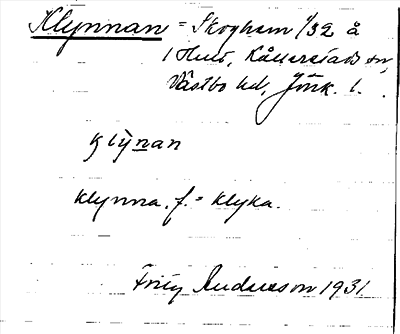 Klynnan = Skoghem 1/32 å
1 Hult, Kållerstads sn,
Västbo hd, Jönk. l.
klỳnan
klynna, f. = klyka.
Fritz Andersson 1931